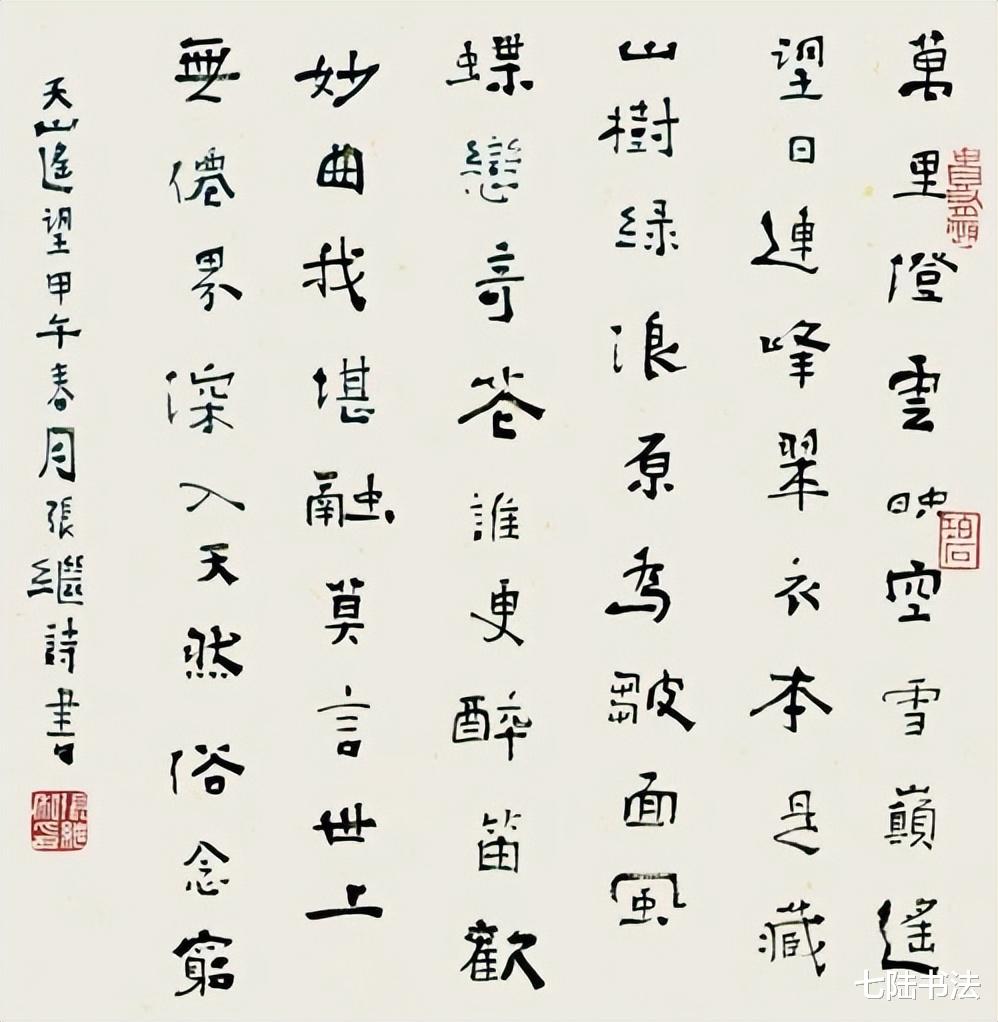 萬里澄雲映空雪巔遙
望日連峰翠衣本是藏
山樹緑浪原為皺面風
蝶戀奇花誰更醉笛歡
妙曲我堪融莫言世上
無僊界深入天然俗念窮
天山遙望甲午春月張繼詩書
七陆书法